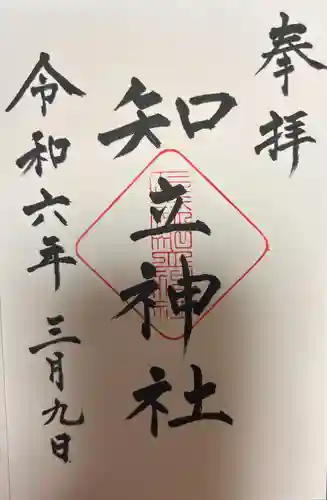 奉拝
知立神社
令和六年三月九日